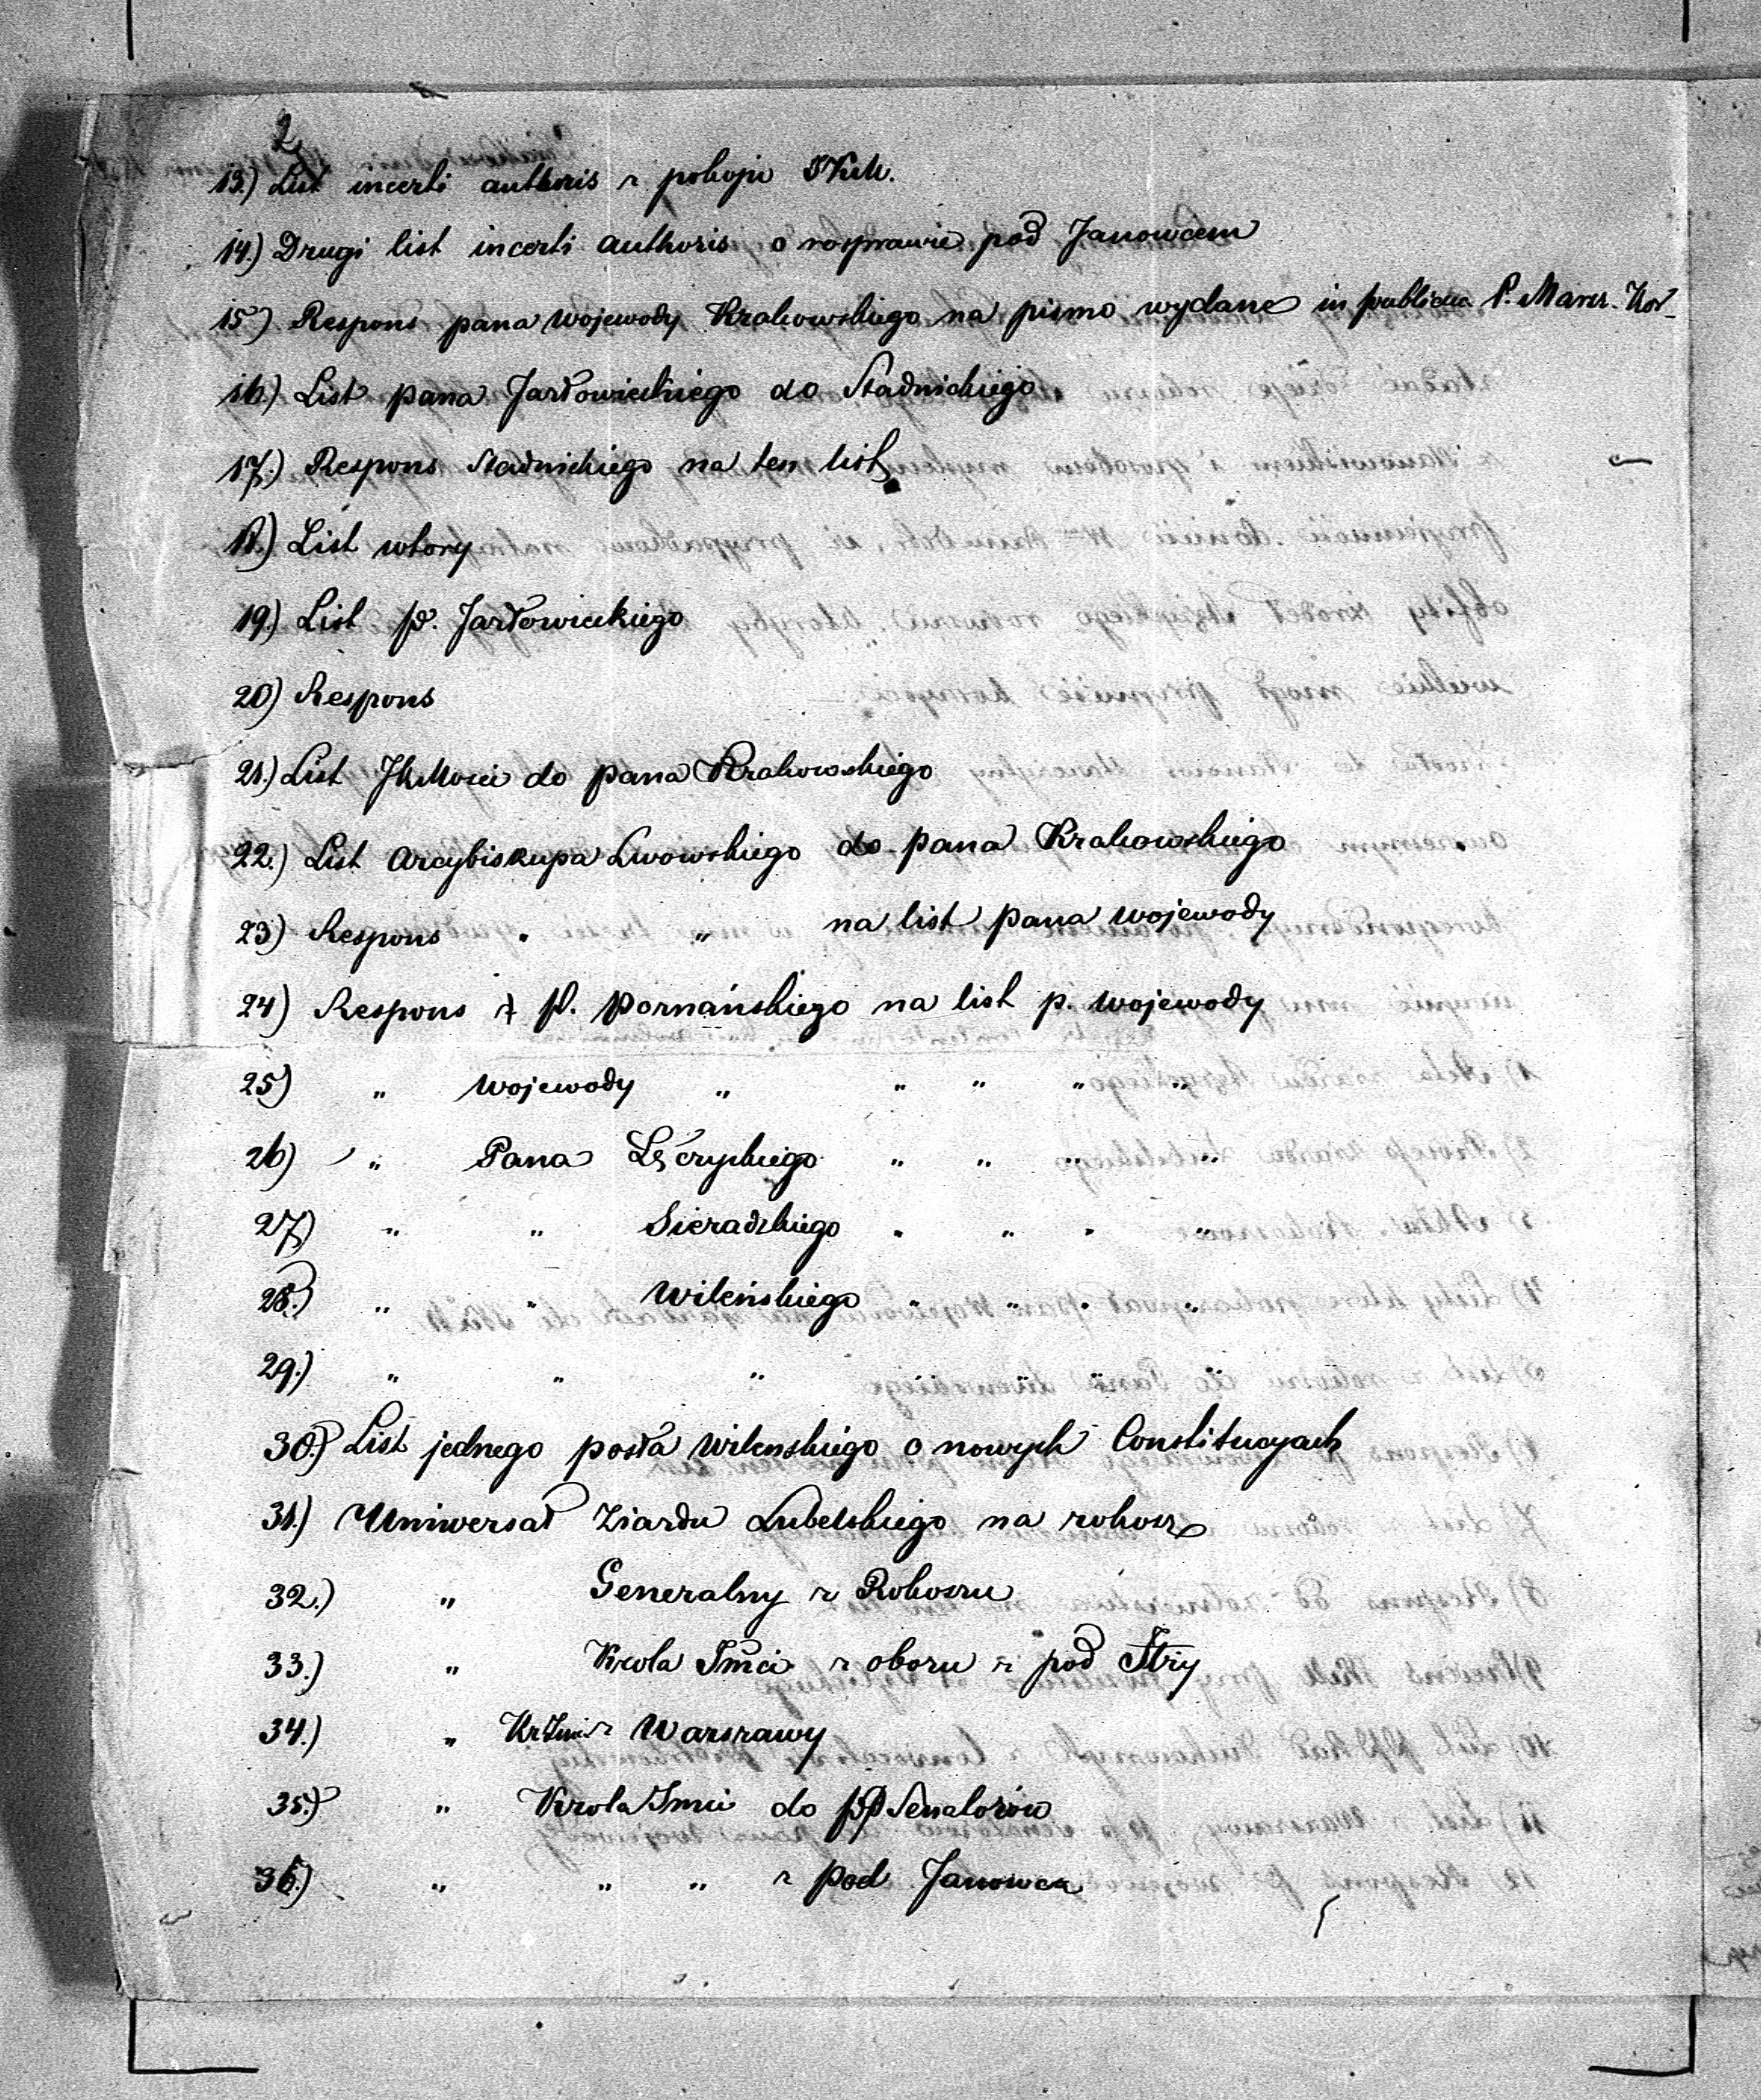 2
13.) List incerti authoris z pokoju JKM.
14.) Drugi list incerti authoris o rosprawie pod Janowcem
15) Respons pana wojewody Krakowskiego na pismo wydane in publicum P. Marsz. Kor.
16.) List pana Jarłowieckiego do Stadnickiego
17.) Respons Stadnickiego na ten list
18.) List wtory
19.) List p. Jarłowieckiego
20) Respons
21.) List JKMoci do pana Krakowskiego
22.) List Arcybiskupa Lwowskiego do pana Krakowskiego
23) Respons " " na list pana wojewody
24) Respons z p. Poznańskiego na list p. wojewody
25) " wojewody " " " " "
26) " Pana Łęczyckiego " " " "
27) " " Sieradzkiego " " " "
28.) " " Wileńskiego " " " "
29.) " " " " " " "
30.) List jednego posła wilenskiego o nowych Constitucyach
31.) Uniwersał Ziazdu Lubelskiego na rokosz
32.) " Generalny z Rokoszu
33.) " Krola Jmci z obozu z pod
34.) " Kr Jmci z Warszawy
35.) " Krola Jmci do pp Senatorów
36.) " " " z pod Janowca